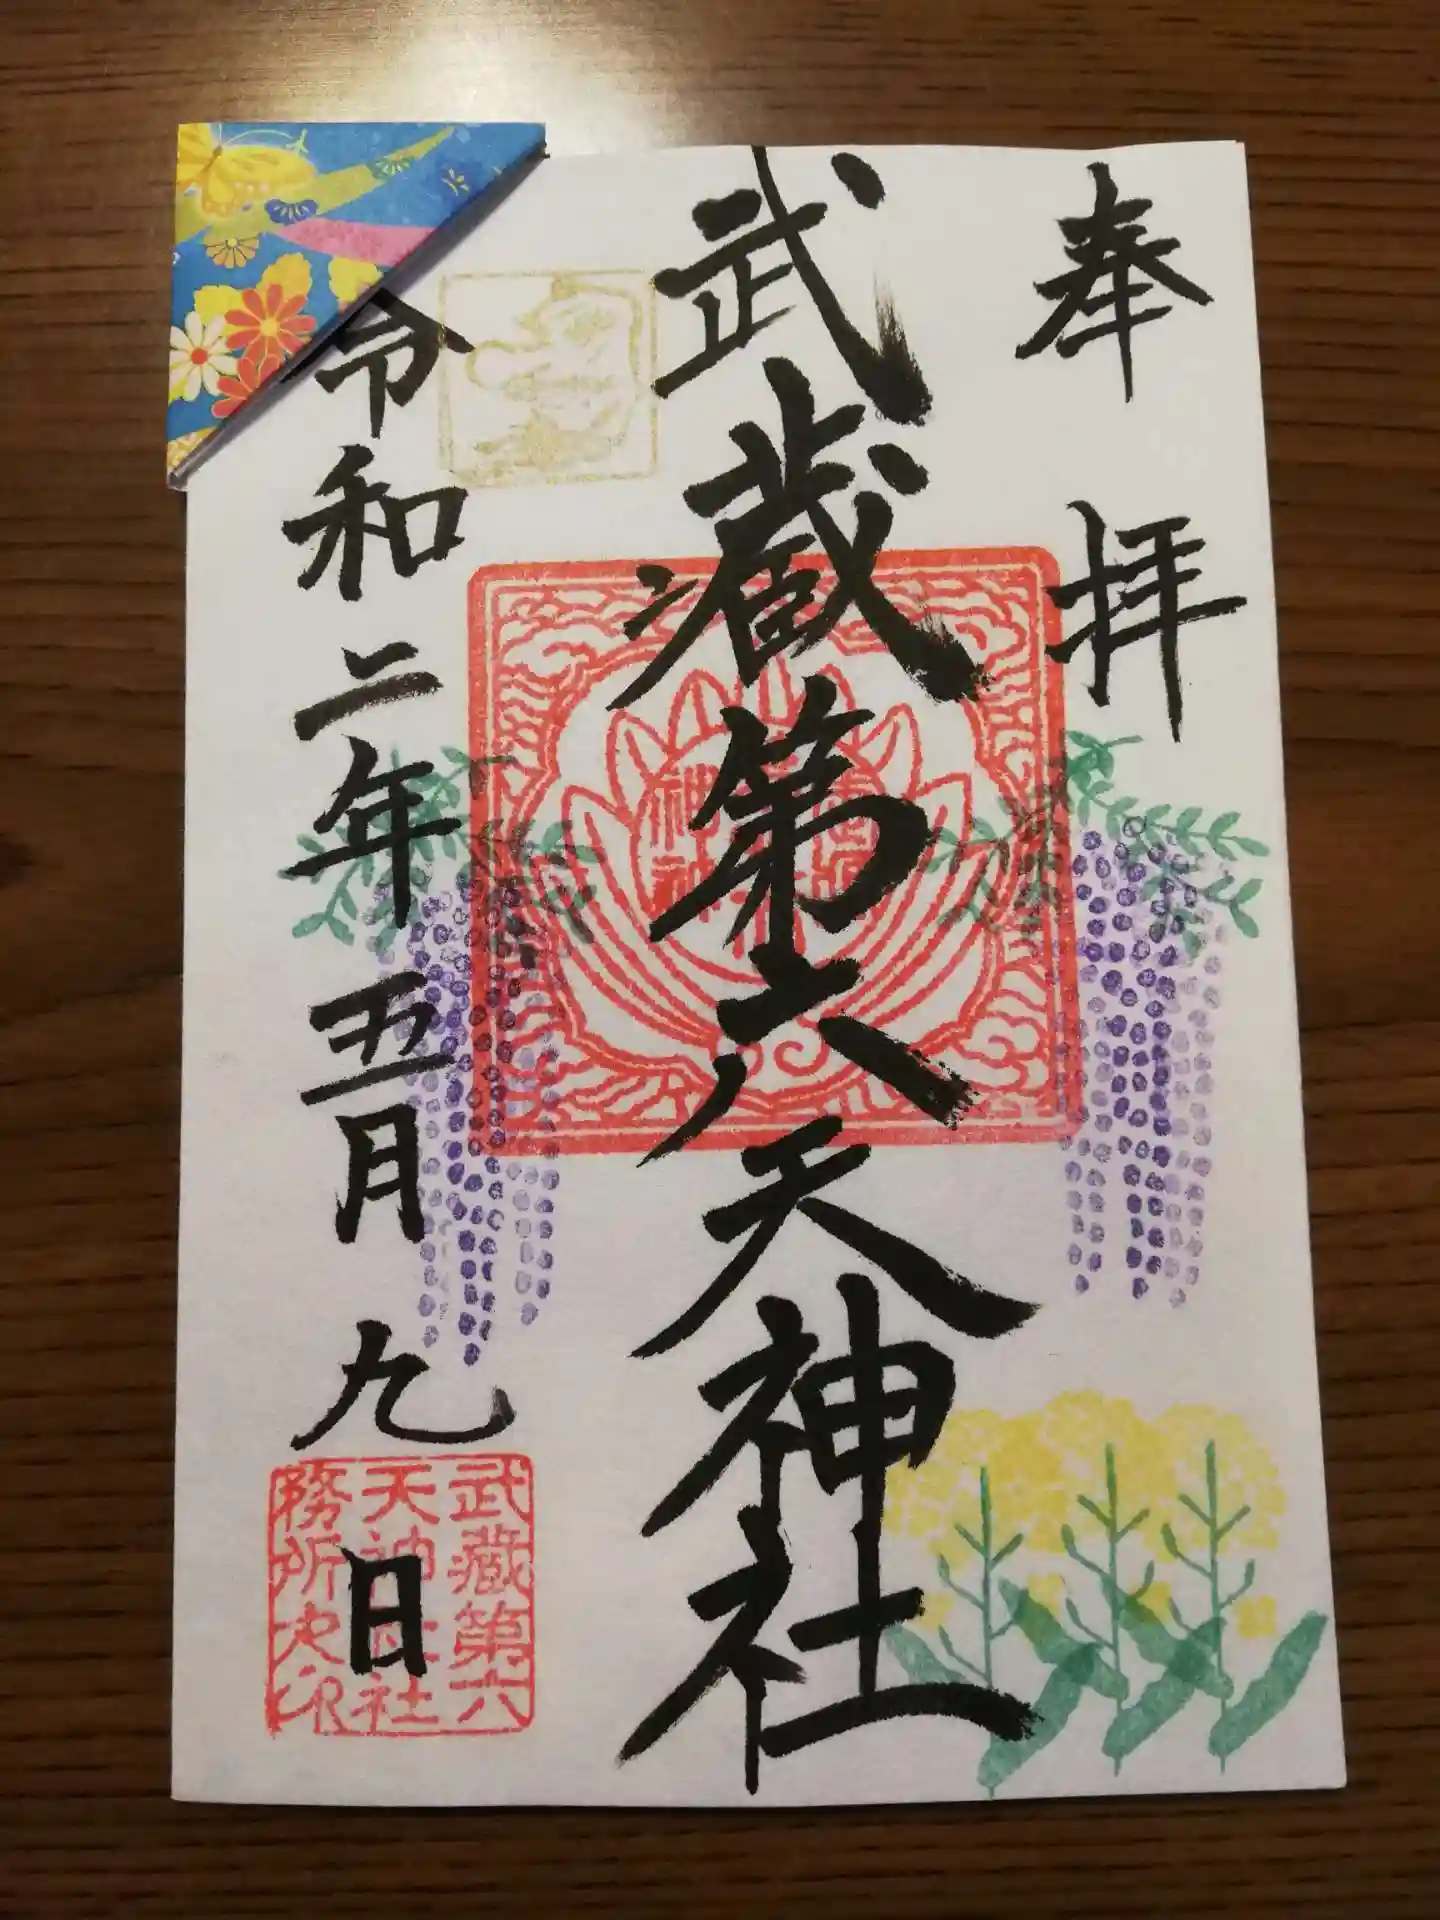 奉拝
武蔵第六天神社
令和二年五月九日
武蔵第六
天神社
務所之印